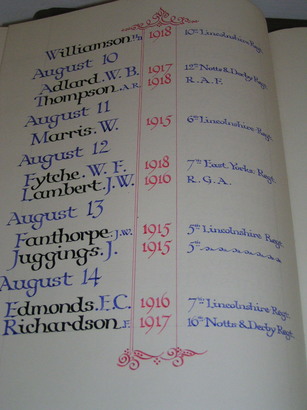 Williamson. 1918 10th Lincolnshire Regt.
August 10
Adlard. W. B. 1917 12th Notts & Derby Regt.
Thompson. A.R. 1918 R.A.F.
August 11
Marris. W. 1915 6th Lincolnshire Regt.
August 12
Fytche. W. F. 1918 7th East Yorks Regt.
Lambert. J.W. 1916 R.G.A.
August 13
Fanthorpe. J.W. 1915 5th Lincolnshire Regt.
Juggings. J. 1915 5th
August 14
Edmonds. F.C. 1916 7th Lincolnshire Regt.
Richardson. F. 1917 16th Notts & Derby Regt.